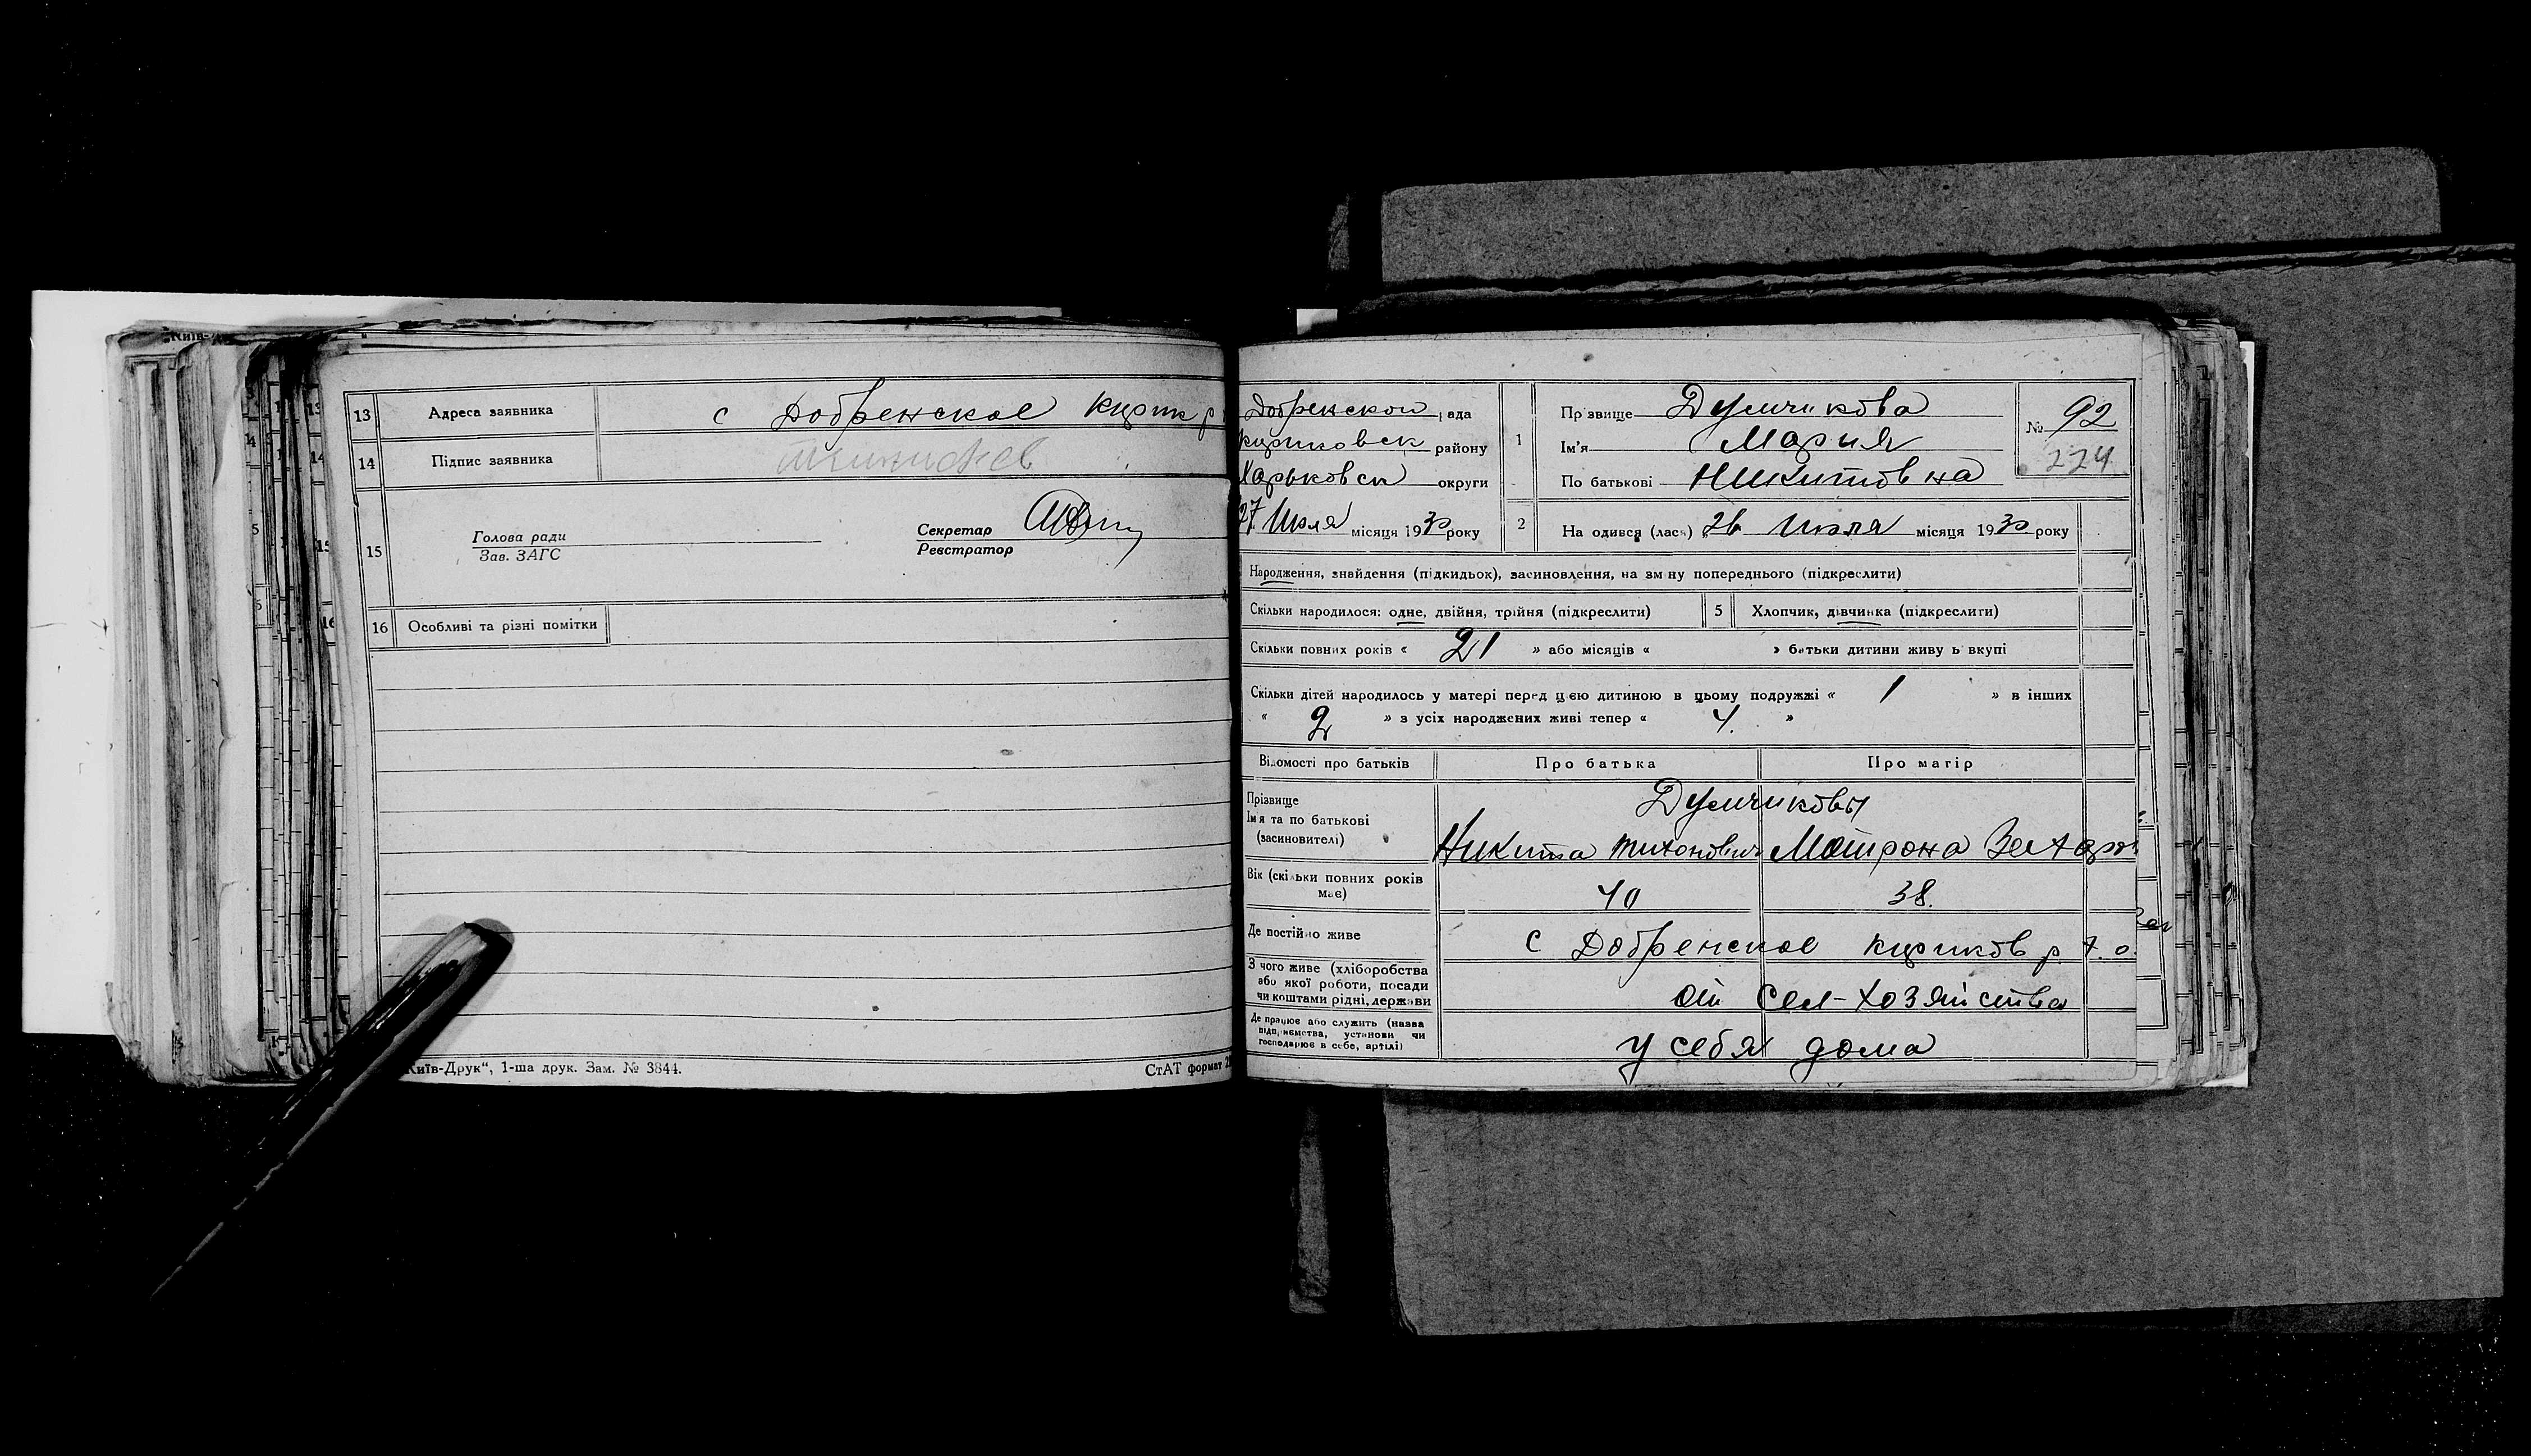 13 Адреса заявника с Добренское
14 Підпис заявника
15 Голова ради Секретар
Зав. ЗАГС Реєстратор
16 Особливі та різні помітки
Київ-Друк“, 1-ша друк. Зам. № 3844. СтАТ формат
Добренской рада
району
Харьковск округи
27 Июля місяця 1930 року
1 Прізвище Думчикова
Ім'я Мария
По батькові Никитовна
№ 92
224
2 Народився (лась) 26 Июля місяця 1930 року
Народження, знайдення (підкидьок), засиновлення, на зміну попереднього (підкреслити)
Скільки народилося: одне, двійня, трійня (підкреслити) 5 Хлопчик, дівчинка (підкреслити)
Скільки повних років « 21 » або місяців « » батьки дитини живуть вкупі
Скільки дітей народилось у матері перед цією дитиною в цьому подружжі « 1 » в інших
« 2 » з усіх народжених живі тепер « 4. »
Відомості про батьків Про батька Про матір
Прізвище Думчиковы
Ім'я та по батькові
(засиновителі) Никита Тихонович Матрона Захаров
Вік (скільки повних років
має) 40 38.
Де постійно живе с Добренское р х. о.
З чого живе (хліборобства
або якої роботи, посади
чи коштами рідні, держави от Сел-хозяйства
Де працює або служить (назва
підприємства, установи чи
господарює в себе, артілі) у себя дома